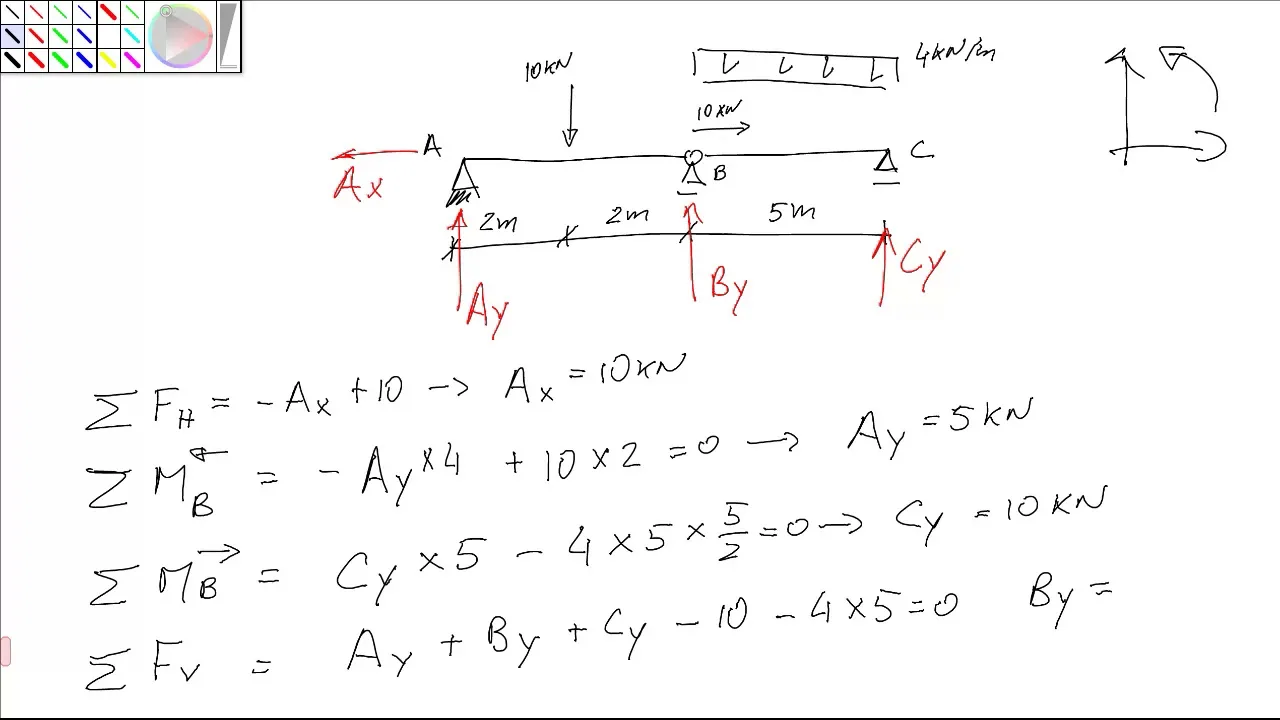 10KN 4KN/m
10KN
A B C
Ax
2m 2m 5m
Ay By Cy
∑ F_H = -Ax + 10 → Ax = 10KN
∑ M_B^← = -Ay × 4 + 10 × 2 = 0 → Ay = 5KN
∑ M_B^→ = Cy × 5 - 4 × 5 × 5/2 = 0 → Cy = 10KN
∑ F_V = Ay + By + Cy - 10 - 4 × 5 = 0 By =